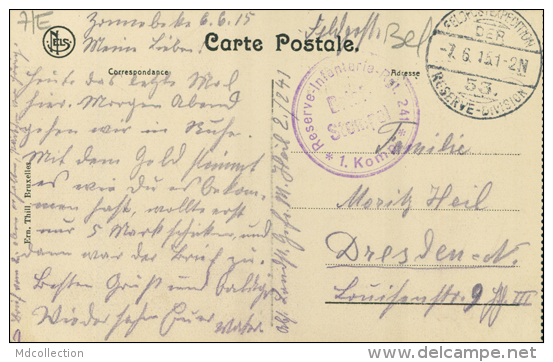 7/E
Zonnebeke 6.6.15
Meine Lieben!
Feldpost
Bel
NELS
Carte Postale.
Correspondance
Adresse
Heute das letzte Mal
hier. Morgen Abend
gehen wir in Ruhe.
Mit dem Geld stimmt
es wie Du es bekom-
men hast, wollte erst
nur 5 Mark schicken, und
dann war der Brief zu.
Besten Gruß und baldiges
Wiedersehen Euer Vater.
Ern. Thill, Bruxelles
M. Heil 2./241
Reserve-Infanterie-Rgt. 241
Stempel
* 1. Komp. *
FELDPOSTEXPEDITION
DER
-7.6.15.1-2N
53.
RESERVE-DIVISION
Familie
Moritz Heil
Dresden-N.
Louisenstr. 9 III
Mdcollection
delcampe.net